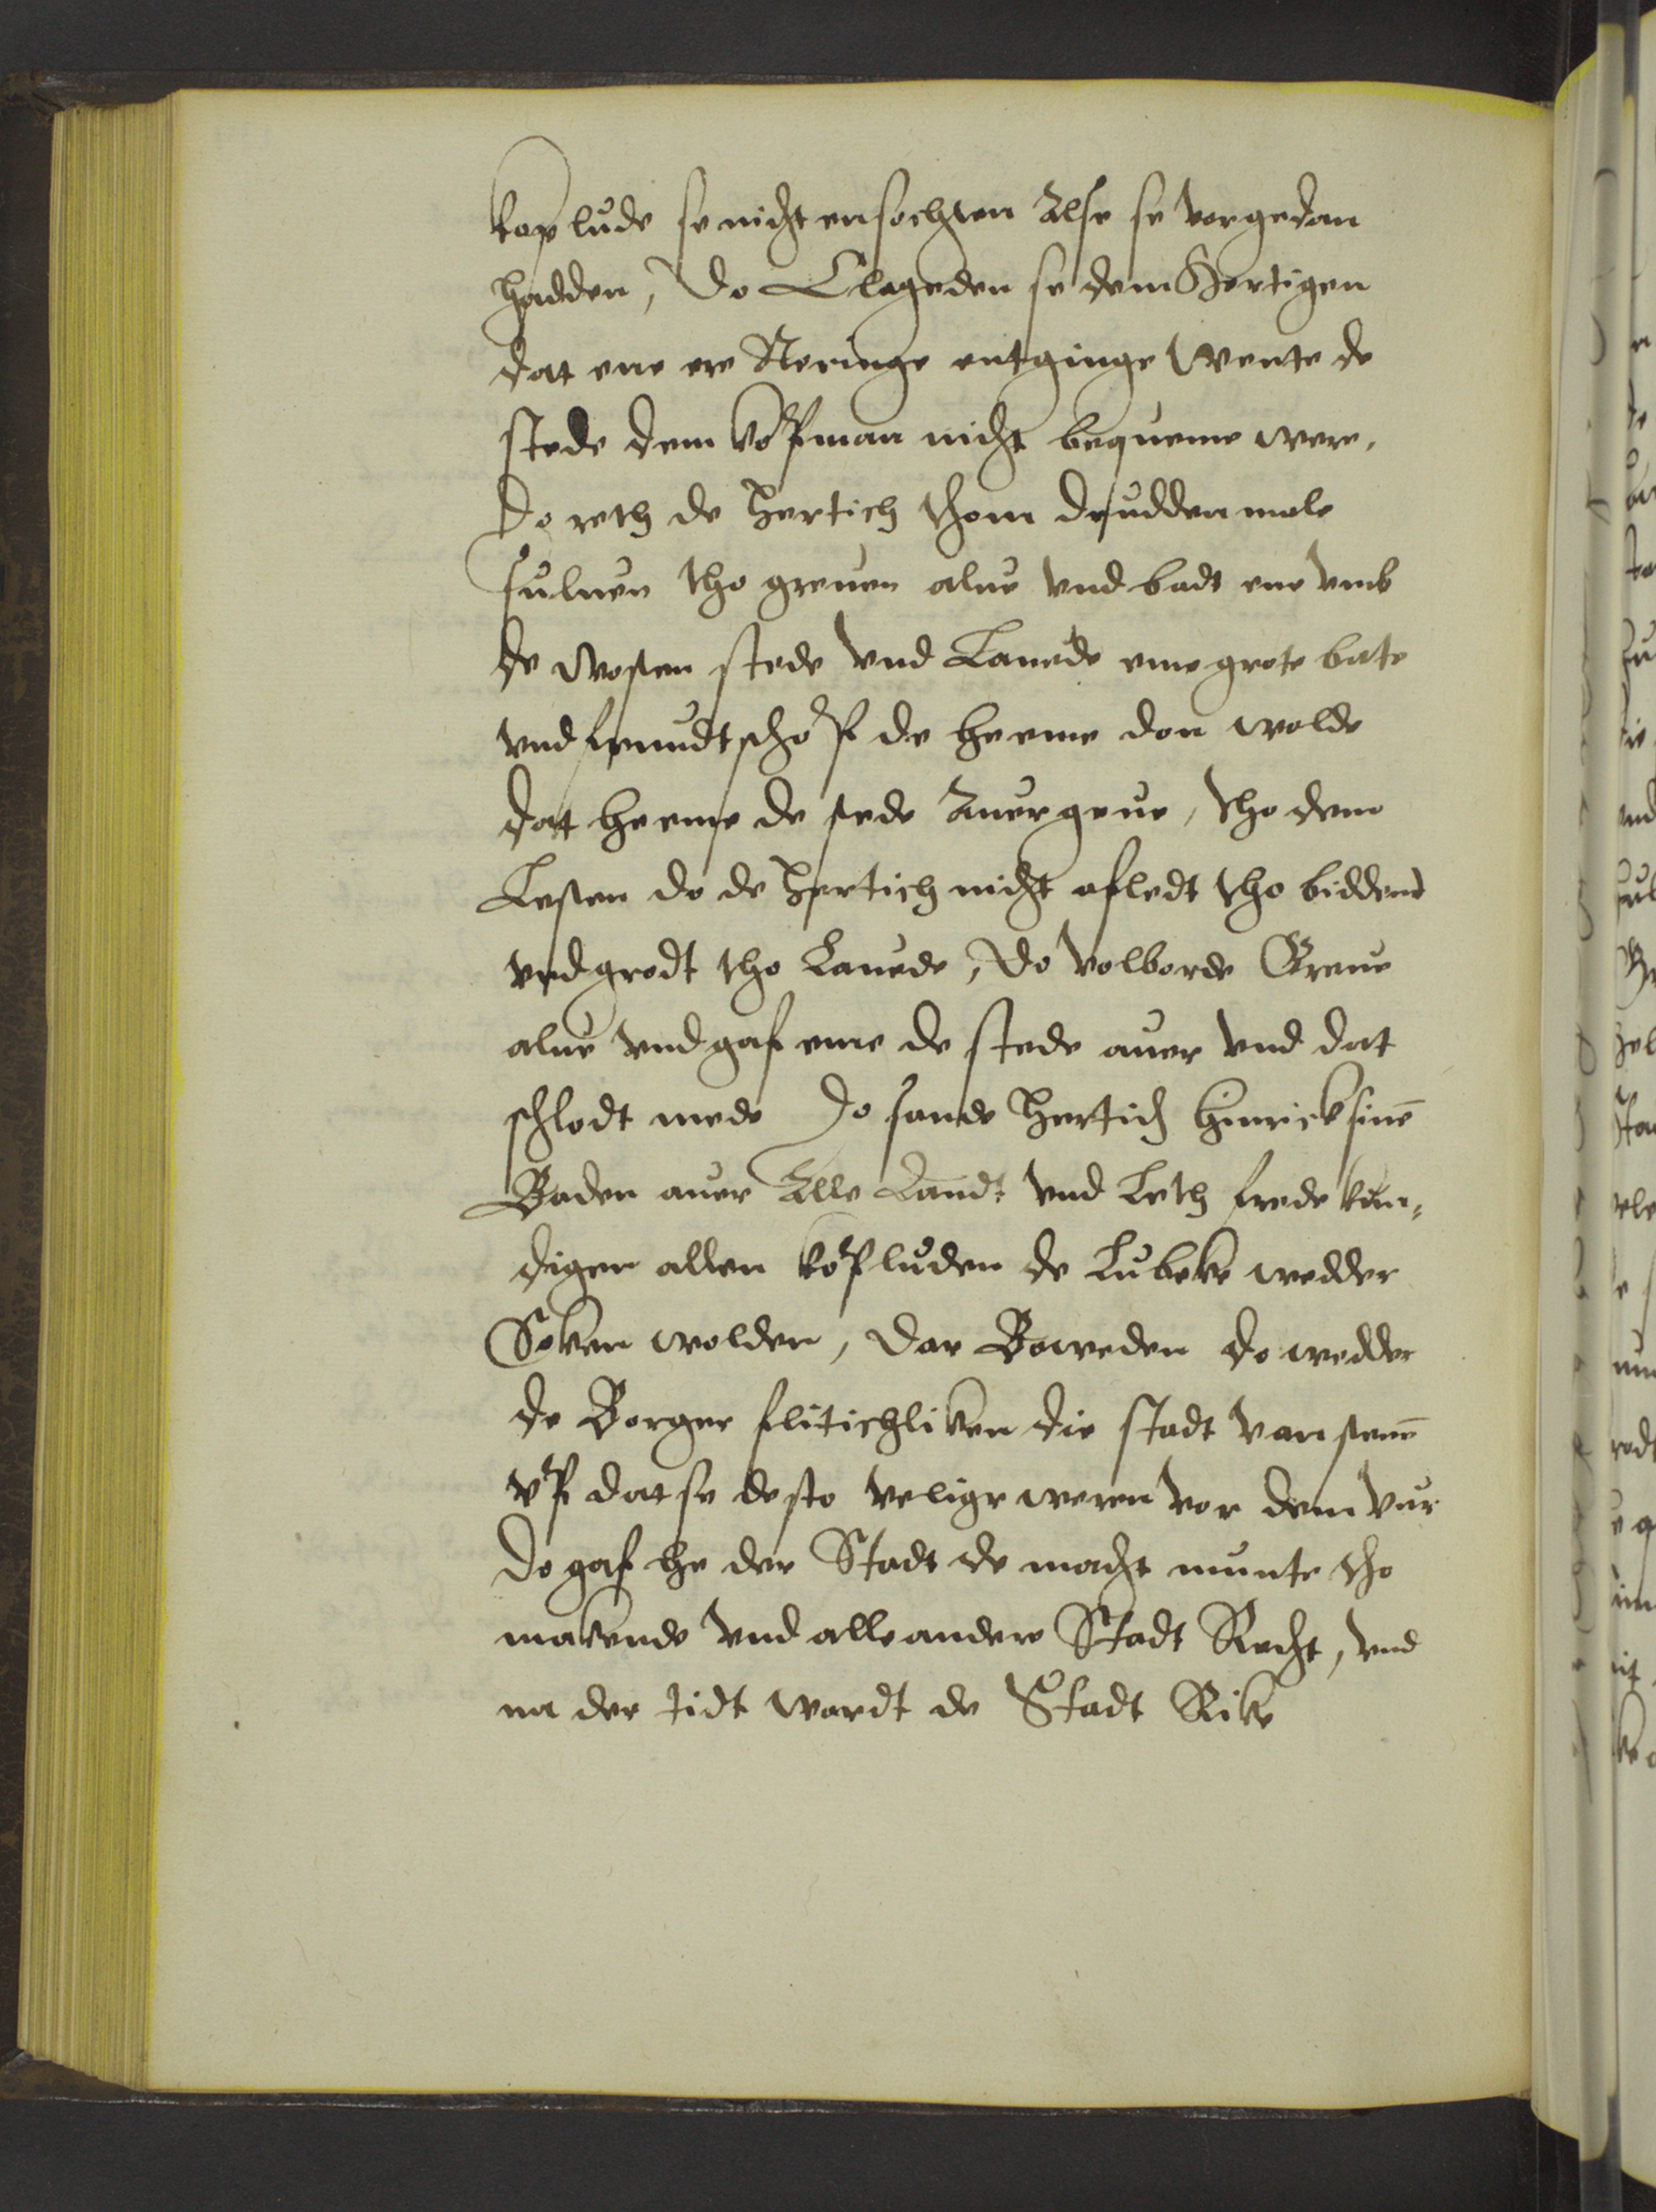 koplude se nicht ensochten Alse se vorgedan
hadden, Do Clageden se dem Hertigen
dat ene ere Neringe entginge Wente de
stede dem kopman nicht bequeme were,
Do reth de hertich thom drudden male
suluen tho greuen alue vnd badt ene vmb
de wosten stede vnd Lauede eme grote bate
vnd frundtschop de he eme don wolde
dat he eme de stede Auergeue, tho dem
Lesten do de hertich nicht afledt tho biddend
vnd grodt tho Lauede, Do volborde Greue
alue vnd gaf eme de stede auer vnd dat
schlodt mede Do sande hertich hinrick sinē
Baden auer Alle Landt vnd Leth frede kun-
digen allen kopluden de Lubeke wedder
Soken wolden, Dar Boweden do wedder
de Borger flitichliken die stadt van stenē
vp dat se desto velige weren vor dem vur
Do gaf he der Stadt de macht munte tho
makende vnd alle andere Stadt Recht, vnd
na der tidt wardt de Stadt Rike